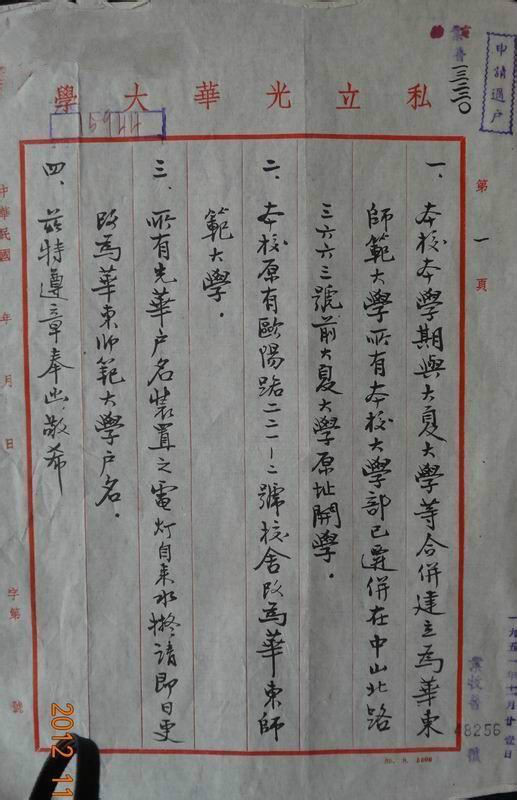 申請過戶
業普一三三〇
私立光華大學
15944
第一頁
一、本校本學期與大夏大學等合併建立為華東
師範大學所有本校大學部已遷併在中山北路
三六六三號前大夏大學原址開學．
二、本校原有歐陽路二二一—二號校舍改為華東師
範大學．
三、所有光華户名裝置之電灯自來水擬請即日更
改為華東师範大學户名．
四、茲特遵章奉函敬希
中華民國 年 月 日
字第 號
一九五一年十月廿
業收普 48256 號
2012 11